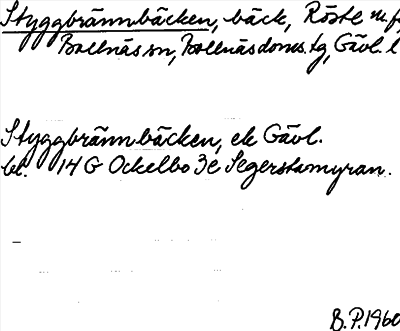 Styggbrännbäcken, bäck, Röste m.fl.
Bollnäs sn, Bollnäs doms. tg, Gävl. l
Styggbrännbäcken, ek Gävl.
bl. 14 G Ockelbo 3e Segerstamyran.
B.P. 1960